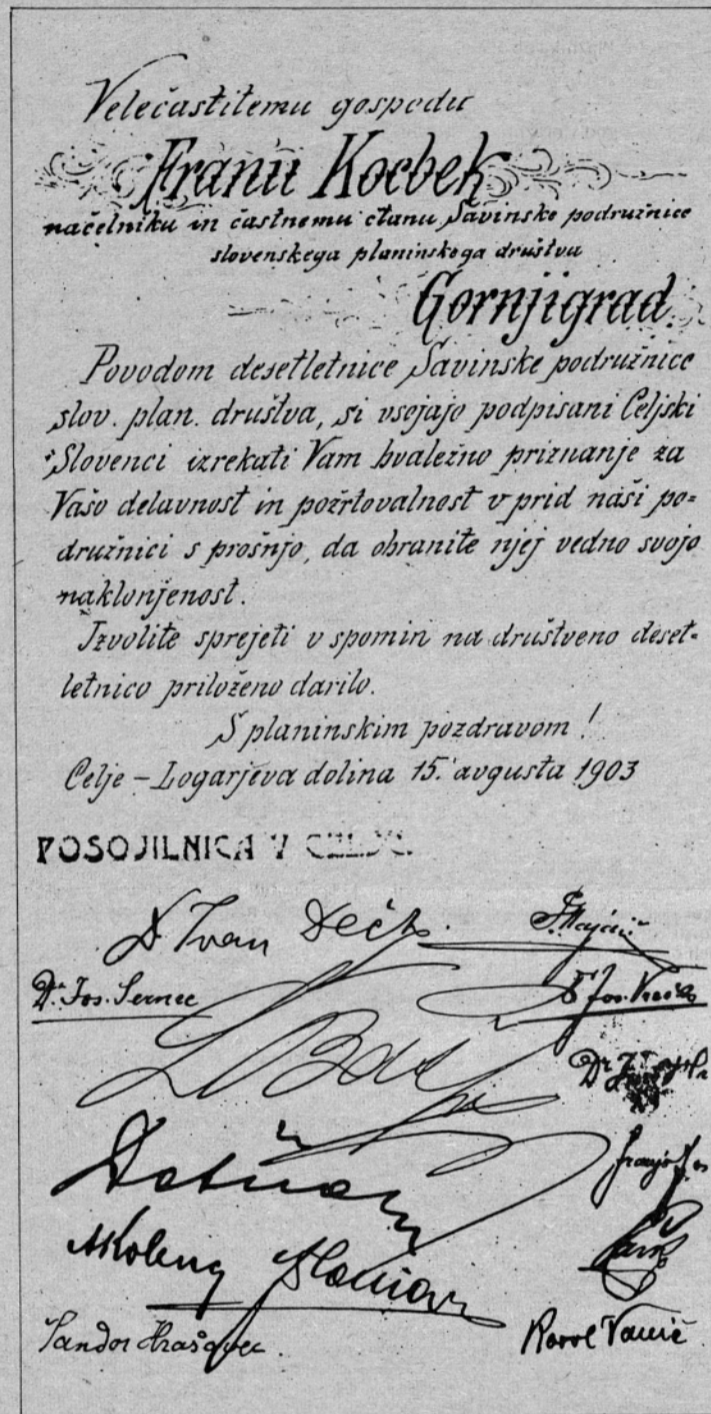 Velečastitemu gospodu
Franu Kocbek
načelniku in častnemu članu Savinske podružnice
slovenskega planinskega društva
Gornjigrad.
Povodom desetletnice Savinske podružnice
slov. plan. društva, si usojajo podpisani Celjski
Slovenci izrekati Vam hvaležno priznanje za
Vašo delavnost in požrtovalnost v prid naši po=
družnici s prošnjo, da ohranite njej vedno svojo
naklonjenost.
Izvolite sprejeti v spomin na društveno deset=
letnico priloženo darilo.
S planinskim pozdravom!
Celje – Logarjeva dolina 15. avgusta 1903
POSOJILNICA V CELJU.
Dr. Ivan Dečko.
Dr. Jos. Sernec
Dr. Jos.
Dr.
Franjo
Karol Vanič